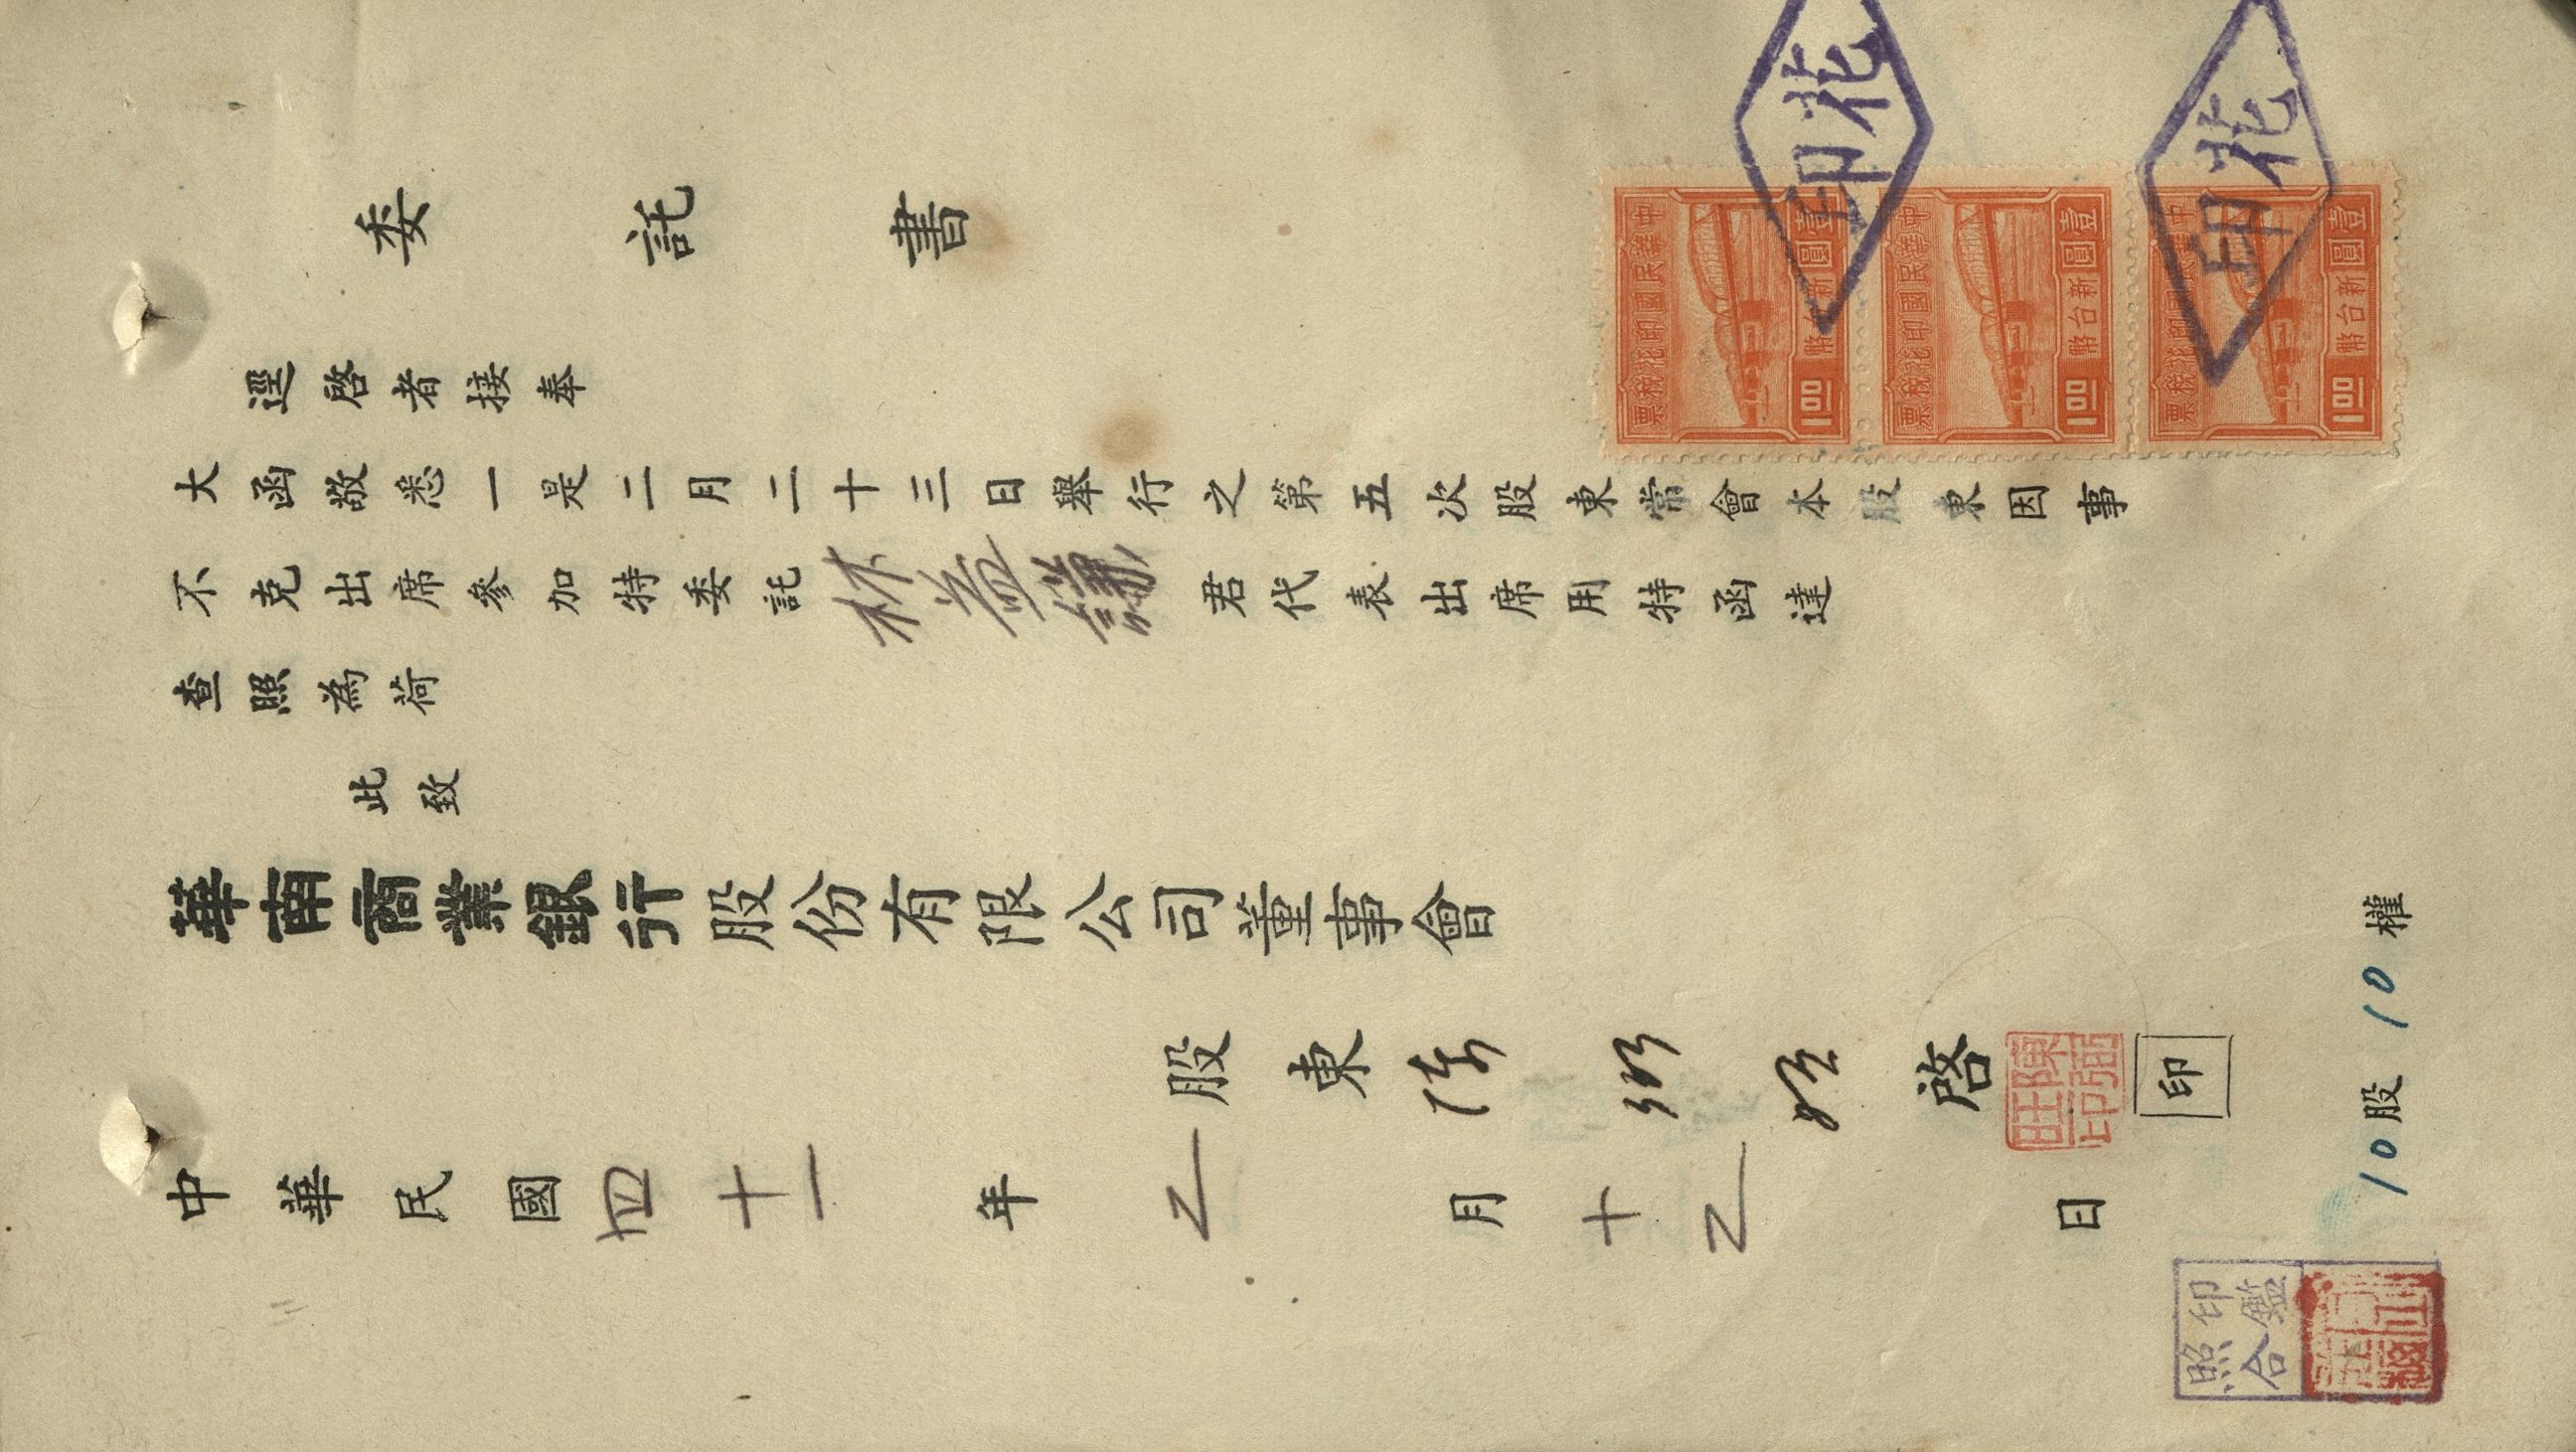 委託書
逕啓者接奉
大函敬悉一是二月二十三日舉行之第五次股東常會本股東因事
不克出席參加特委託林益謙君代表出席用特函達
查照為荷
此致
華南商業銀行股份有限公司董事會
股東陳弼旺啓
陳弼旺印
印
中華民國四十一年乙月十乙日
10股10權
印花
印花
中華民國印花稅票
壹圓新台幣
1.00
中華民國印花稅票
壹圓新台幣
1.00
中華民國印花稅票
壹圓新台幣
1.00
印鑑
照合